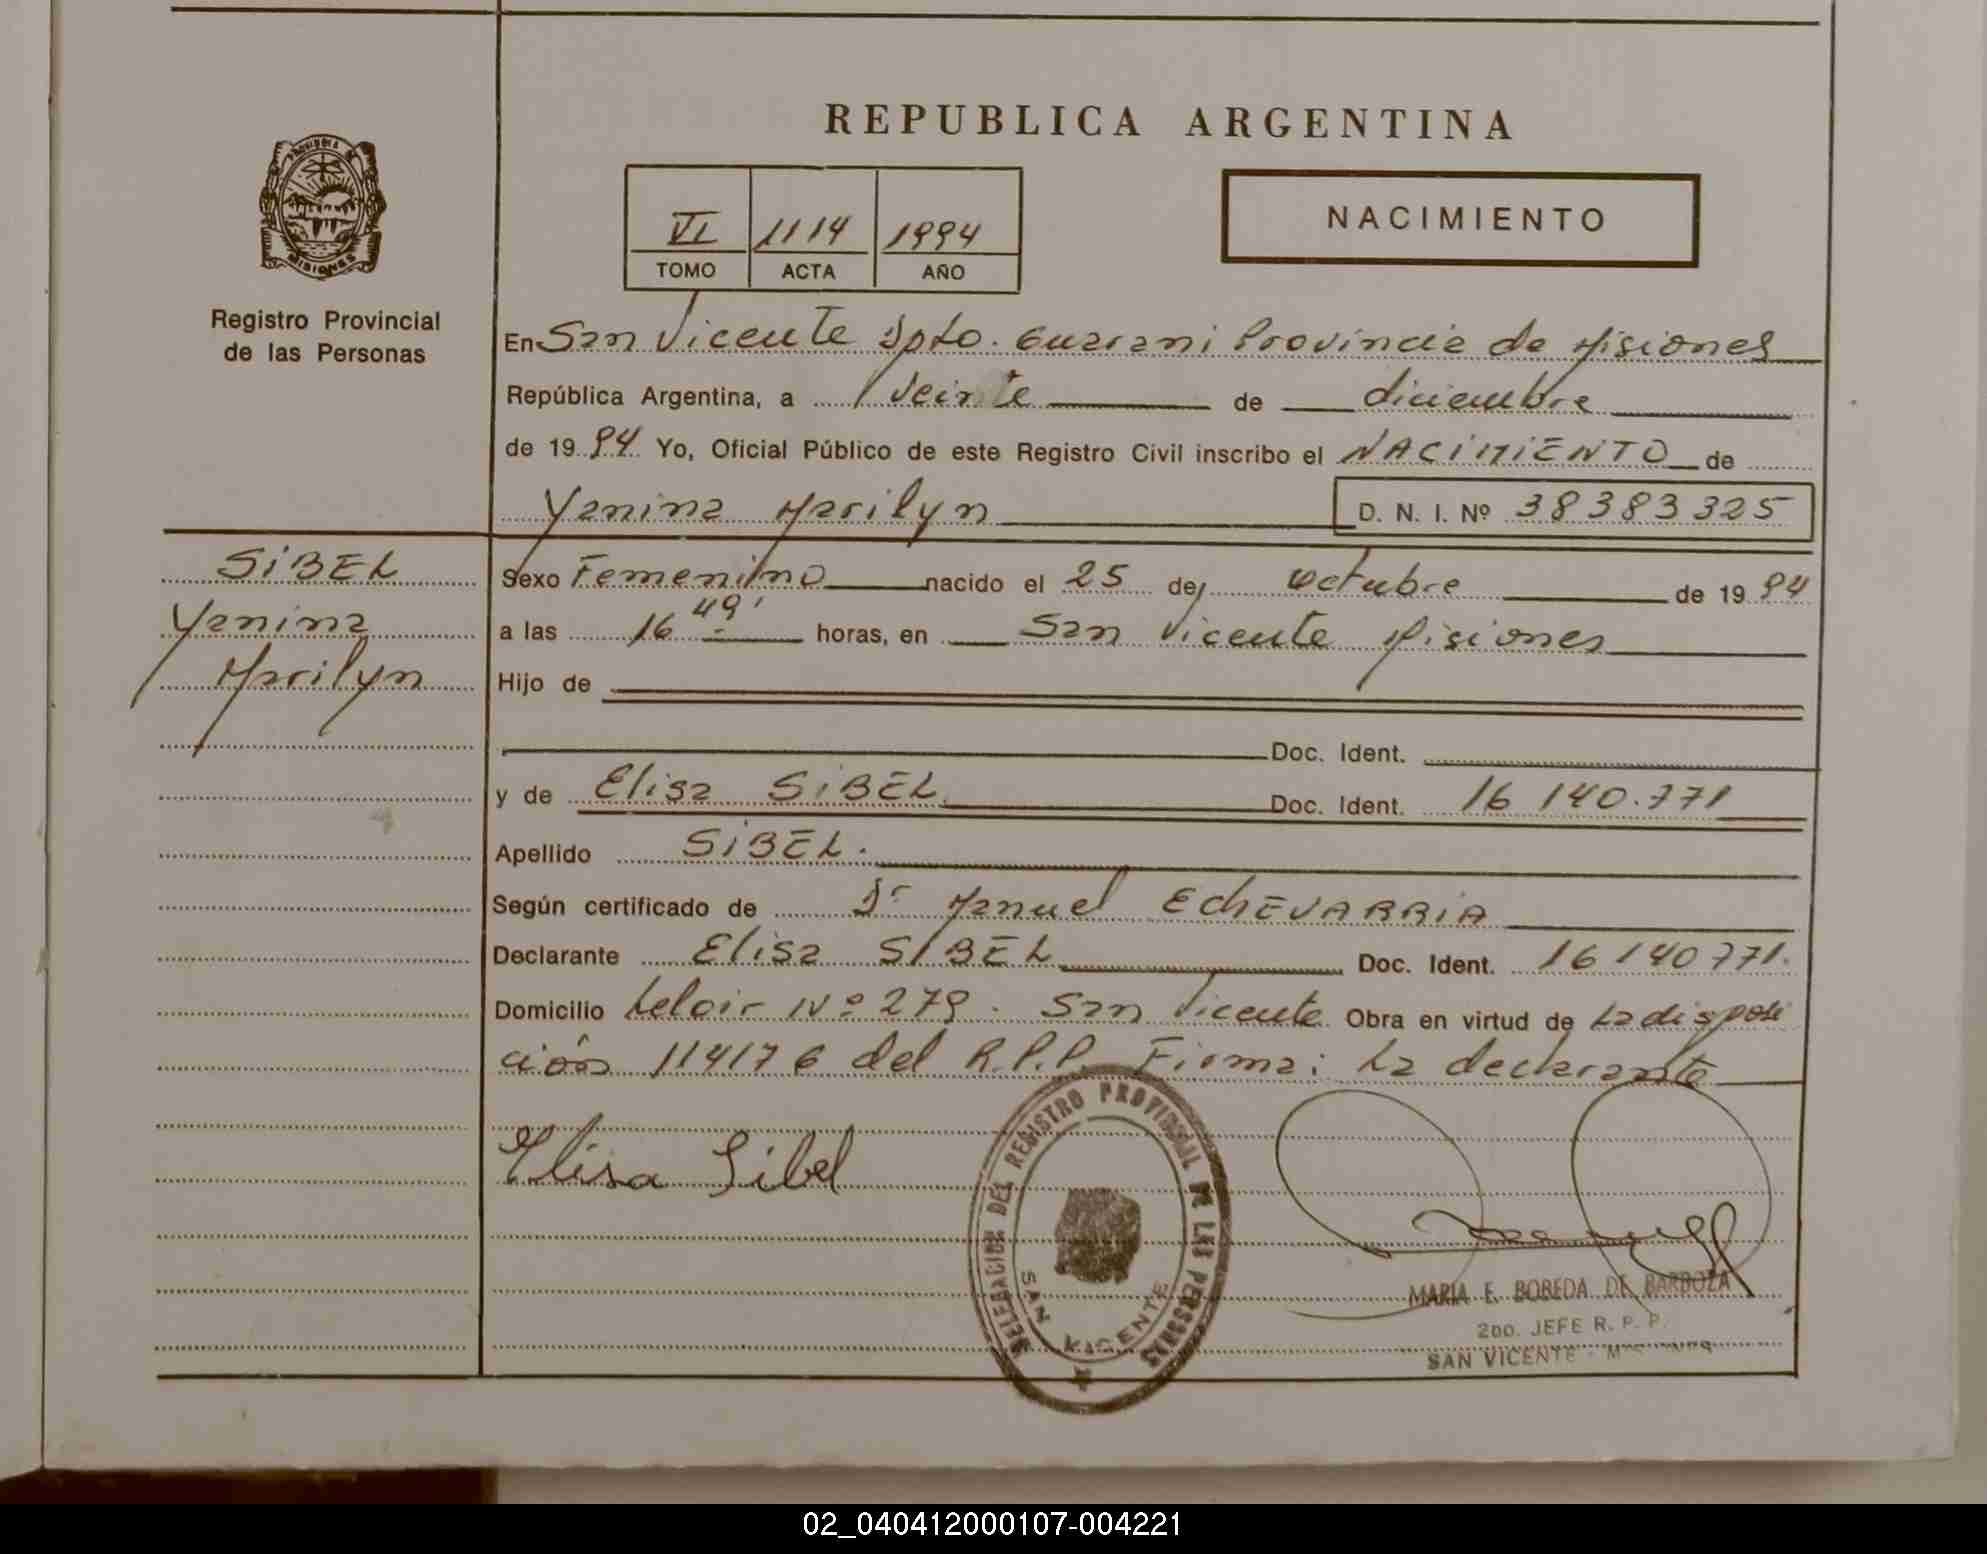 REPUBLICA ARGENTINA
PROVINCIA DE
MISIONES
Registro Provincial
de las Personas
VI 1114 1994
TOMO ACTA AÑO
NACIMIENTO
En San Vicente Dpto. Guarani Provincia de Misiones
República Argentina, a veinte de diciembre
de 1994 Yo, Oficial Público de este Registro Civil inscribo el NACIMIENTO de
Yanina Marilyn D. N. I. Nº 38383325
SIBEL
Yanina
Marilyn
Sexo Femenino nacido el 25 de octubre de 1994
a las 16 49' horas, en San Vicente Misiones
Hijo de
Doc. Ident.
y de Elisa SIBEL Doc. Ident. 16 140.771
Apellido SIBEL.
Según certificado de Dr Manuel ECHEVARRIA
Declarante Elisa SIBEL Doc. Ident. 16 140 771.
Domicilio Leloir Nº 279. San Vicente Obra en virtud de La disposi
ción 114176 del R.P.P. Firma: La declarante
Elisa Sibel
DELEGACION DEL REGISTRO PROVINCIAL DE LAS PERSONAS
SAN VICENTE
MARIA E. BOBEDA DE BARBOZA
2DO. JEFE R. P. P.
SAN VICENTE - MISIONES
02_040412000107-004221